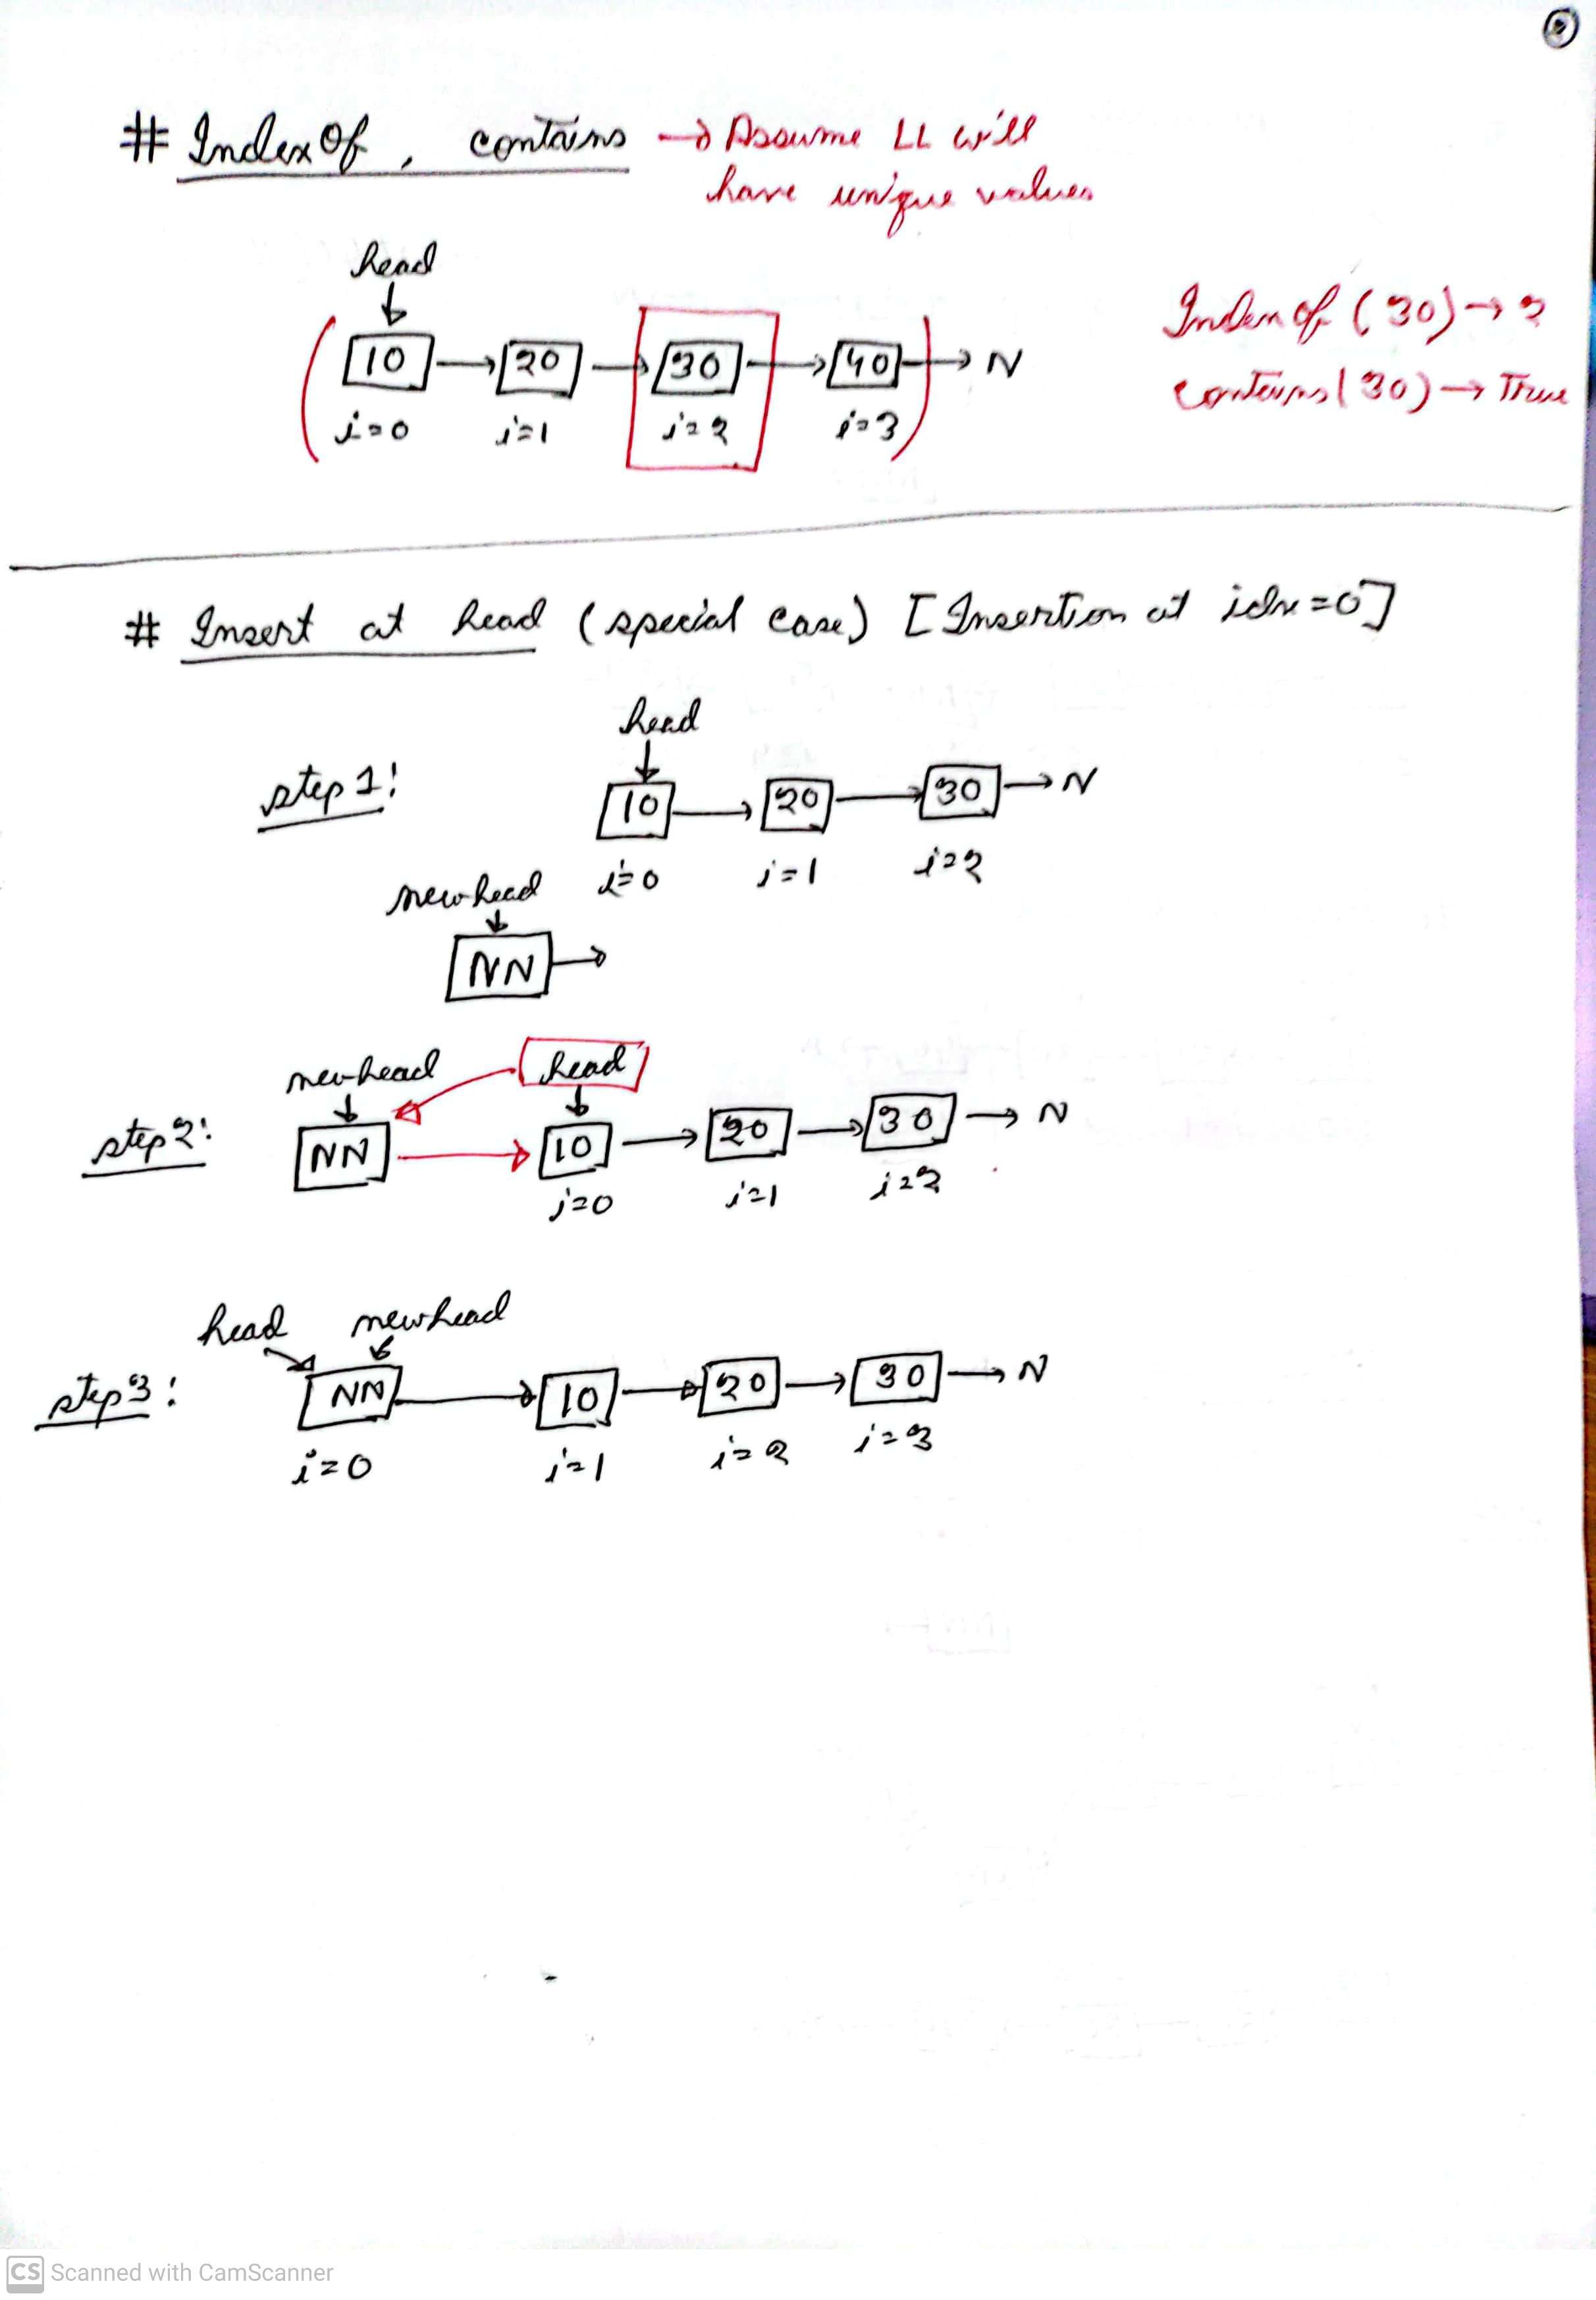 # IndexOf, contains → Assume LL will
have unique values
head
10 → 20 → 30 → 40 → N
i=0 i=1 i=2 i=3
Index of (30) → 2
contains (30) → True
# Insert at head (special case) [Insertion at idx=0]
head
step 1: 10 → 20 → 30 → N
i=0 i=1 i=2
newhead
NN →
newhead head
step 2: NN → 10 → 20 → 30 → N
i=0 i=1 i=2
head newhead
step 3: NN → 10 → 20 → 30 → N
i=0 i=1 i=2 i=3
CS Scanned with CamScanner